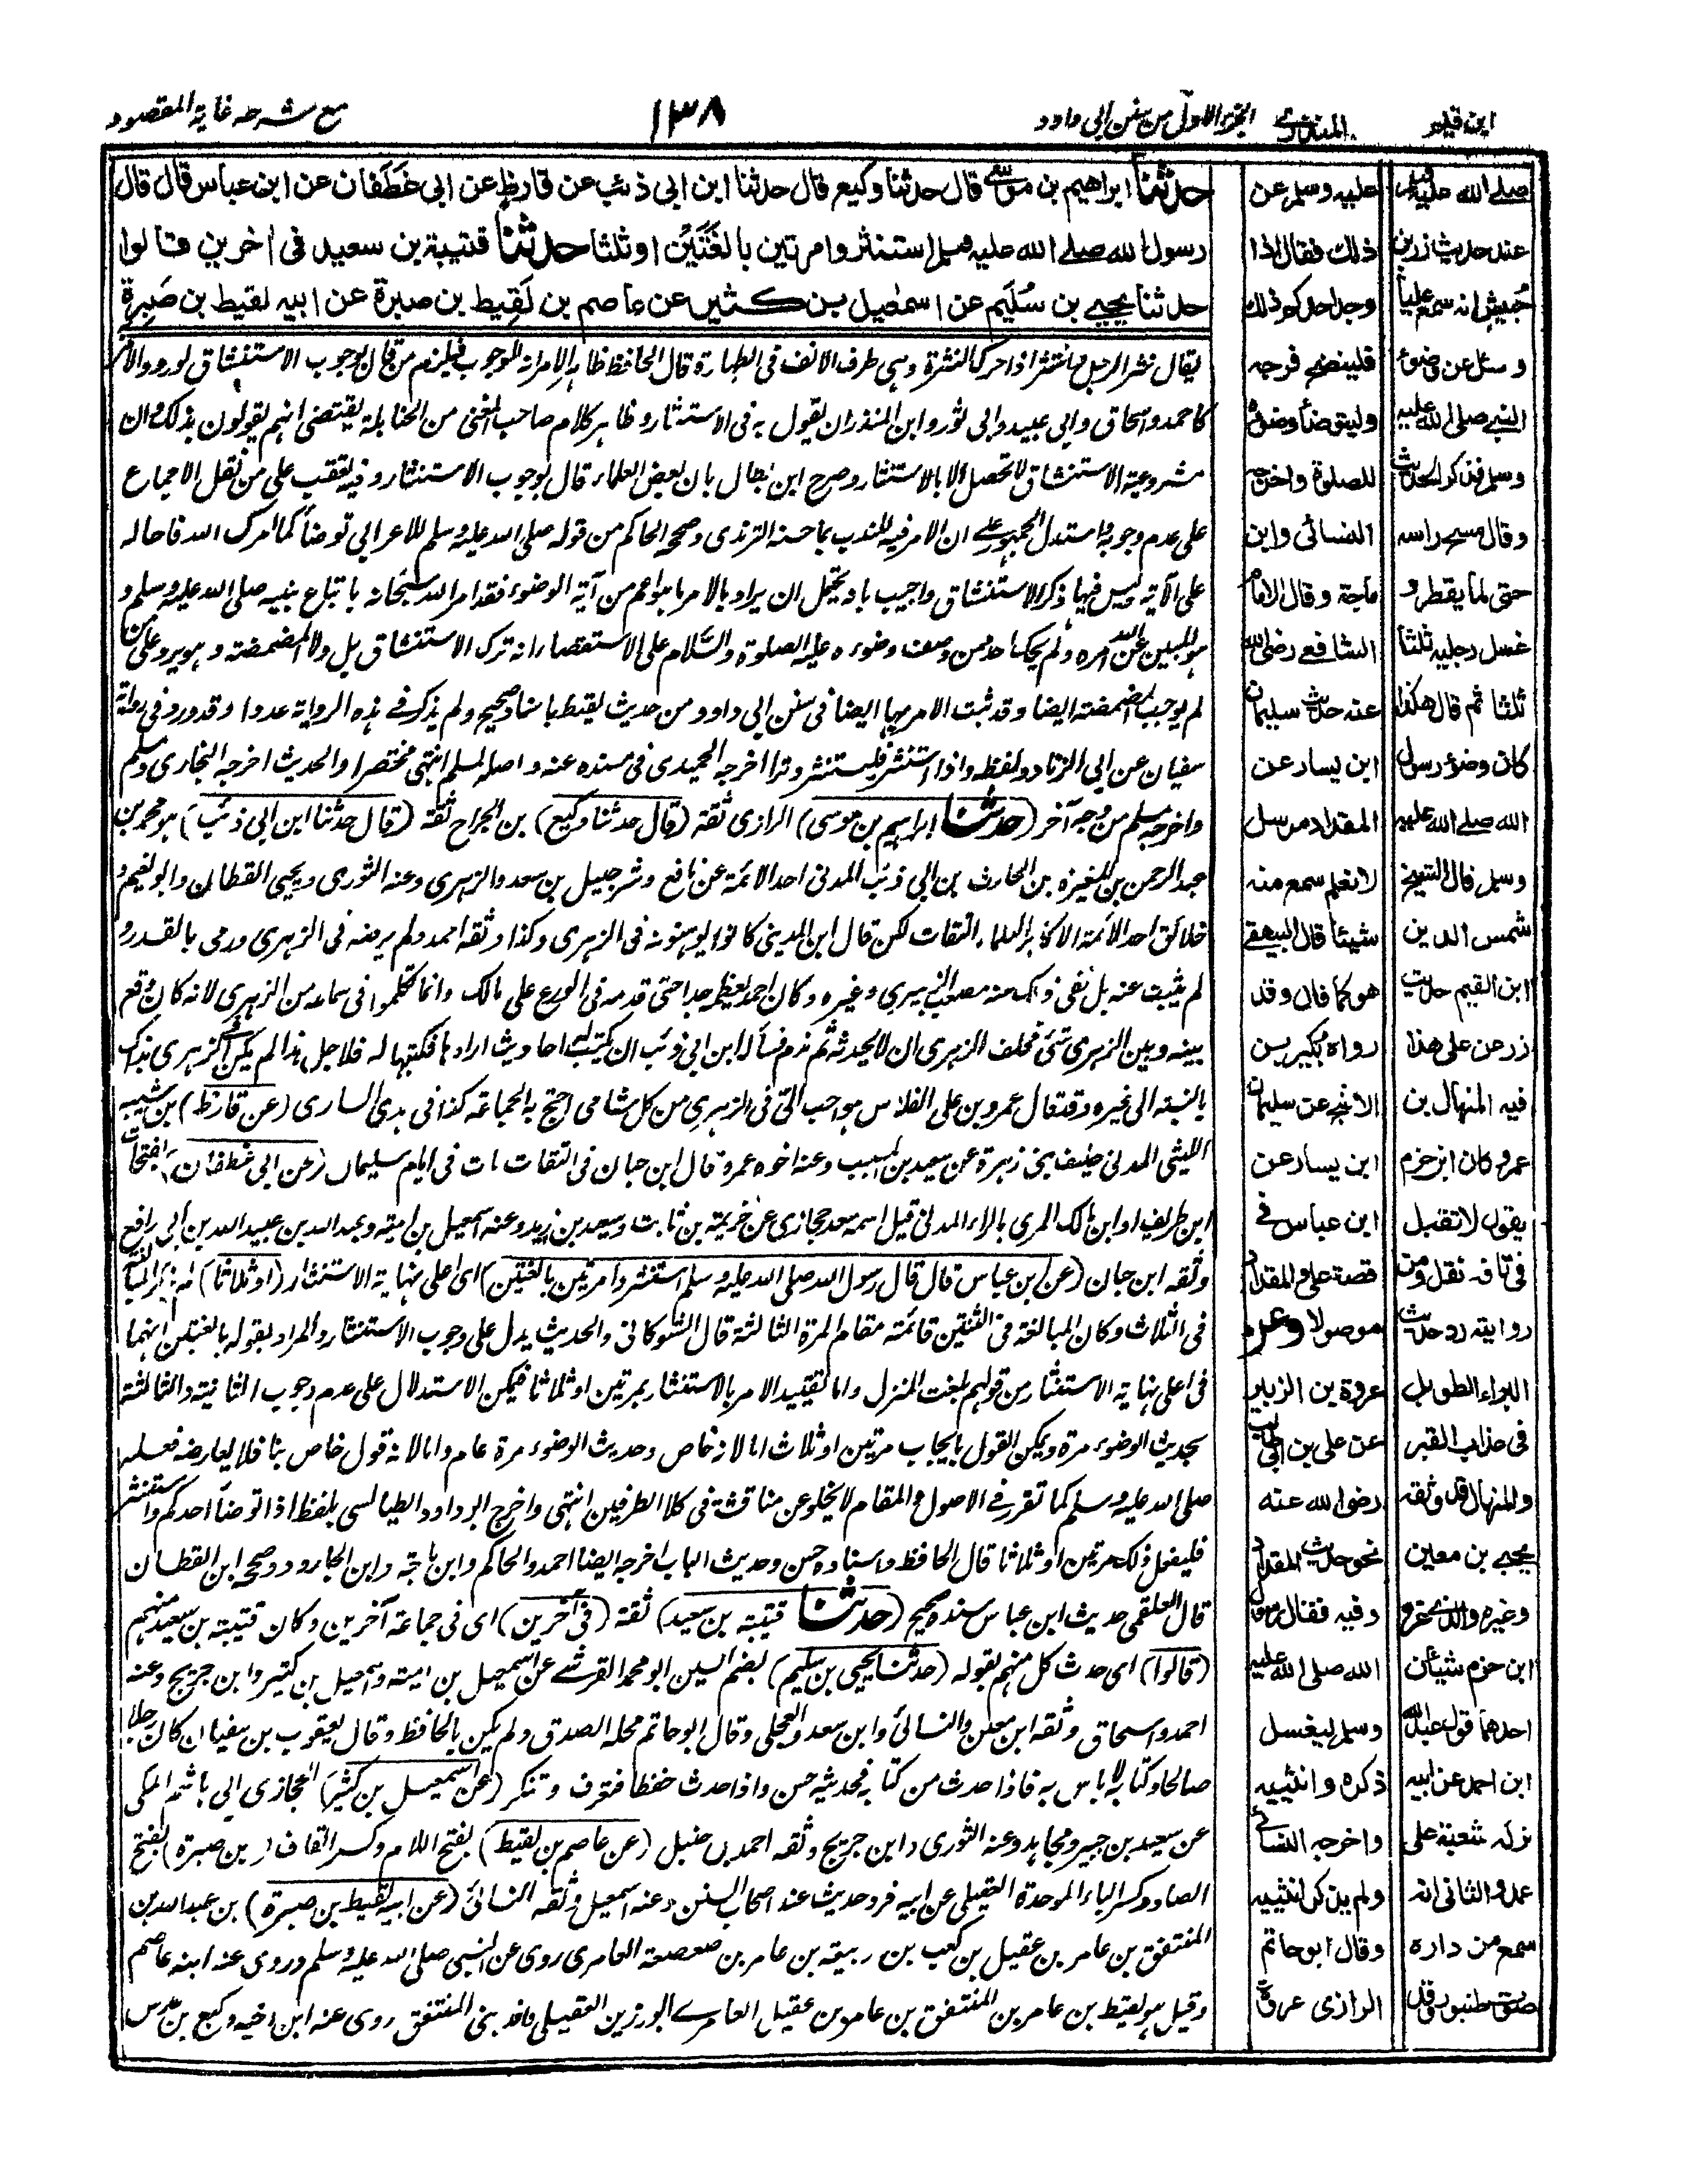 ابن قيم
المنذري
الجزء الاول من سنن ابي داود
١٣٨
مع شرحه غاية المقصود
حدثنا ابراهيم بن موسى قال حدثنا وكيع قال حدثنا ابن ابي ذئب عن قارظ عن ابي غَطَفان عن ابن عباس قال قال
رسول الله صلے الله عليه وسلم استنثروا مرتين بالغتين او ثلثا حدثنا قتيبة بن سعيد في اخرين قالوا
حدثنا يحيے بن سُليم عن اسمعيل بن كثير عن عاصم بن لَقِيط بن صبرة عن ابيه لقيط بن صَبِرة
يقال نثر الرجل وانتثر اذا حرك النثرة وهي طرف الانف في الطهارة قال الحافظ ظاهر الامر انه للوجوب فيلزم من قال بوجوب الاستنشاق لورود الامر
كاحمد واسحاق وابي عبيد وابي ثور وابن المنذر ان يقول به في الاستنثار وظاهر كلام صاحب المغني من الحنابلة يقتضي انهم يقولون بذلك وان
مشروعية الاستنشاق لا تحصل الا بالاستنثار وصرح ابن بطال بان بعض العلماء قال بوجوب الاستنثار وفيه تعقب على من نقل الاجماع
على عدم وجوبه واستدل الجمهور علے ان الامر فيه للندب بما حسنه الترمذي وصححه الحاكم من قوله صلى الله عليه وسلم للاعرابي توضأ كما امرك الله فاحاله
على الآية وليس فيها ذكر الاستنشاق واجيب بانه يحتمل ان يراد بالامر ما هو اعم من آية الوضوء فقد امر الله سبحانه باتباع نبيه صلى الله عليه وسلم و
هو المبين عن الله امره ولم يحك احد ممن وصف وضوءه عليه الصلوة والسلام على الاستقصار انه ترك الاستنشاق بل ولا المضمضة وهو يرد على من
لم يوجب المضمضة ايضا وقد ثبت الامر بها ايضا في سنن ابي داود من حديث لقيط باسناد صحيح ولم يذكر في هذه الرواية عددا وقد ورد في رواية
سفيان عن ابي الزناد ولفظه واذا استنثر فليستنثر وترا اخرجه الحميدي في مسنده عنه واصله لمسلم انتهى مختصرا والحديث اخرجه البخاري ومسلم
واخرجه مسلم من وجه آخر (حدثنا ابراهيم بن موسى) الرازي ثقة (قال حدثنا وكيع) بن الجراح ثقة (قال حدثنا ابن ابي ذئب) هو محمد بن
عبد الرحمن بن المغيرة بن الحارث بن ابي ذئب المدني احد الائمة عن نافع وشرحبيل بن سعد والزهري وعنه الثوري ويحيى القطان وابو نعيم و
خلائق احد الأئمة الاكابر العلماء الثقات لكن قال ابن المديني كانوا يوهنونه في الزهري وكذا وثقه احمد ولم يرضه في الزهري ورمي بالقدر و
لم يثبت عنه بل نفى ذلك عنه مصعب الزبيري وغيره وكان احمد يعظمه جدا حتى قدمه في الورع على مالك وانما تكلموا في سماعه من الزهري لانه كان وقع
بينه وبين الزهري شئ فحلف الزهري ان لا يحدثه ثم ندم فسأله ابن ابي ذئب ان يكتب له احاديث ارادها فكتبها له فلاجل هذا لم يكن في الزهري بذاك
بالنسبة الى غيره وقد قال عمرو بن علي الفلاس هو احب الي في الزهري من كل شامي احتج به الجماعة كذا في هدي الساري (عن قارظ) بن شيبة
الليثي المدني حليف بني زهرة عن سعيد بن المسيب وعنه اخوه عمرو قال ابن حبان في الثقات مات في ايام سليمان (عن ابي غطفان) بفتحات
ابن طريف او ابن مالك المري بالراء المدني قيل اسمه سعد حجازي عن خزيمة بن ثابت وسعيد بن زيد وعنه اسمعيل بن امية وعبد الله بن عبيد الله بن ابي رافع
وثقه ابن حبان (عن ابن عباس قال قال رسول الله صلى الله عليه وسلم استنثروا مرتين بالغتين) اي اعلى نهاية الاستنثار (او ثلاثا) لم يذكر المبالغة
في الثلاث وكان المبالغة في الثنتين قائمة مقام المرة الثالثة قال الشوكاني والحديث يدل على وجوب الاستنثار والمراد بقوله بالغتين انهما
في اعلى نهاية الاستنثار من قولهم بلغت المنزل واما تقييد الامر بالاستنثار بمرتين او ثلاثا فيمكن الاستدلال على عدم وجوب الثانية والثالثة
بحديث الوضوء مرة ويمكن القول بايجاب مرتين او ثلاث اما لانه خاص وحديث الوضوء مرة عام واما لانه قول خاص بنا فلا يعارضه فعله
صلى الله عليه وسلم كما تقرر في الاصول والمقام لا يخلو عن مناقشة في كلا الطرفين انتهى واخرج ابو داود الطيالسي بلفظ اذا توضأ احدكم واستنثر
فليفعل ذلك مرتين او ثلاثا قال الحافظ واسناده حسن وحديث الباب اخرجه ايضا احمد والحاكم وابن ماجة وابن الجارود وصححه ابن القطان
قال العلقمي حديث ابن عباس سنده صحيح (حدثنا قتيبة بن سعيد) ثقة (في آخرين) اي في جماعة آخرين وكان قتيبة بن سعيد منهم
(قالوا) اي حدث كل منهم بقوله (حدثنا يحيى بن سليم) بضم السين ابو محمد القرشے عن اسمعيل بن امية واسمعيل بن كثير وابن جريج وعنه
احمد واسحاق وثقه ابن معين والنسائي وابن سعد والعجلي وقال ابو حاتم محله الصدق ولم يكن بالحافظ وقال يعقوب بن سفيان كان رجلا
صالحا وكتابه لا باس به فاذا حدث من كتابه فحديثه حسن واذا حدث حفظا فتعرف وتنكر (عن اسمعيل بن كثير) الحجازي ابي هاشم المكي
عن سعيد بن جبير ومجاهد وعنه الثوري وابن جريج وثقه احمد بن حنبل (عن عاصم بن لقيط) بفتح اللام وكسر القاف (بن صبرة) بفتح
الصاد وكسر الباء الموحدة العقيلي عن ابيه فرد حديث عند اصحاب السنن وعنه اسمعيل وثقه النسائي (عن ابيه لقيط بن صبرة) بن عبد الله بن
المنتفق بن عامر بن عقيل بن كعب بن ربيعة بن عامر بن صعصعة العامري روى عن النبي صلى الله عليه وسلم وروى عنه ابنه عاصم
وقيل هو لقيط بن عامر بن المنتفق بن عامر بن عقيل العامرے ابو رزين العقيلي وافد بني المنتفق روى عنه ابن اخيه وكيع بن عدس
عليه وسلم عن
ذلك فقال اذا
وجد احدكم ذلك
فلينضح فرجه
وليتوضأ وضوءه
للصلوة واخرجه
النسائي وابن
ماجة وقال الامام
الشافعي رضي الله
عنه حديث سليمان
ابن يسار عن
المقداد مرسل
لا نعلم سمع منه
شيئا قال البيهقے
هو كما قال وقد
رواه بكير بن
الاشج عن سليمان
ابن يسار عن
ابن عباس في
قصة علي والمقداد
موصولا وعن
عروة بن الزبير
عن علي بن ابي طالب
رضي الله عنه
نحو حديث المقداد
وفيه فقال رسول
الله صلى الله عليه
وسلم ليغسل
ذكره وانثييه
واخرجه النسائے
ولم يذكر انثييه
وقال ابو حاتم
الرازي عروة
صلے الله عليه وسلم
عند حديث زر بن
حُبيش انه سمع علياً
وسئل عن وضوء
النبي صلى الله عليه
وسلم فذكر الحديث
وقال مسح راسه
حتى لما يقطر و
غسل رجليه ثلثا
ثلثا ثم قال هكذا
كان وضوء رسول
الله صلے الله عليه
وسلم قال الشيخ
شمس الدين
ابن القيم حديث
زر عن علي هذا
فيه المنهال بن
عمرو كان ابن حزم
يقول لا تقبل
في باقة بقل ومن
روايته رد حديث
البراء الطويل
في عذاب القبر
والمنهال قد وثقه
يحيے بن معين
وغيره والذي غر
ابن حزم شيئان
احدهما قول عبد الله
ابن احمد عن ابيه
تركه شعبة على
عمد والثاني انه
سمع من داره
صوت طنبور وقد